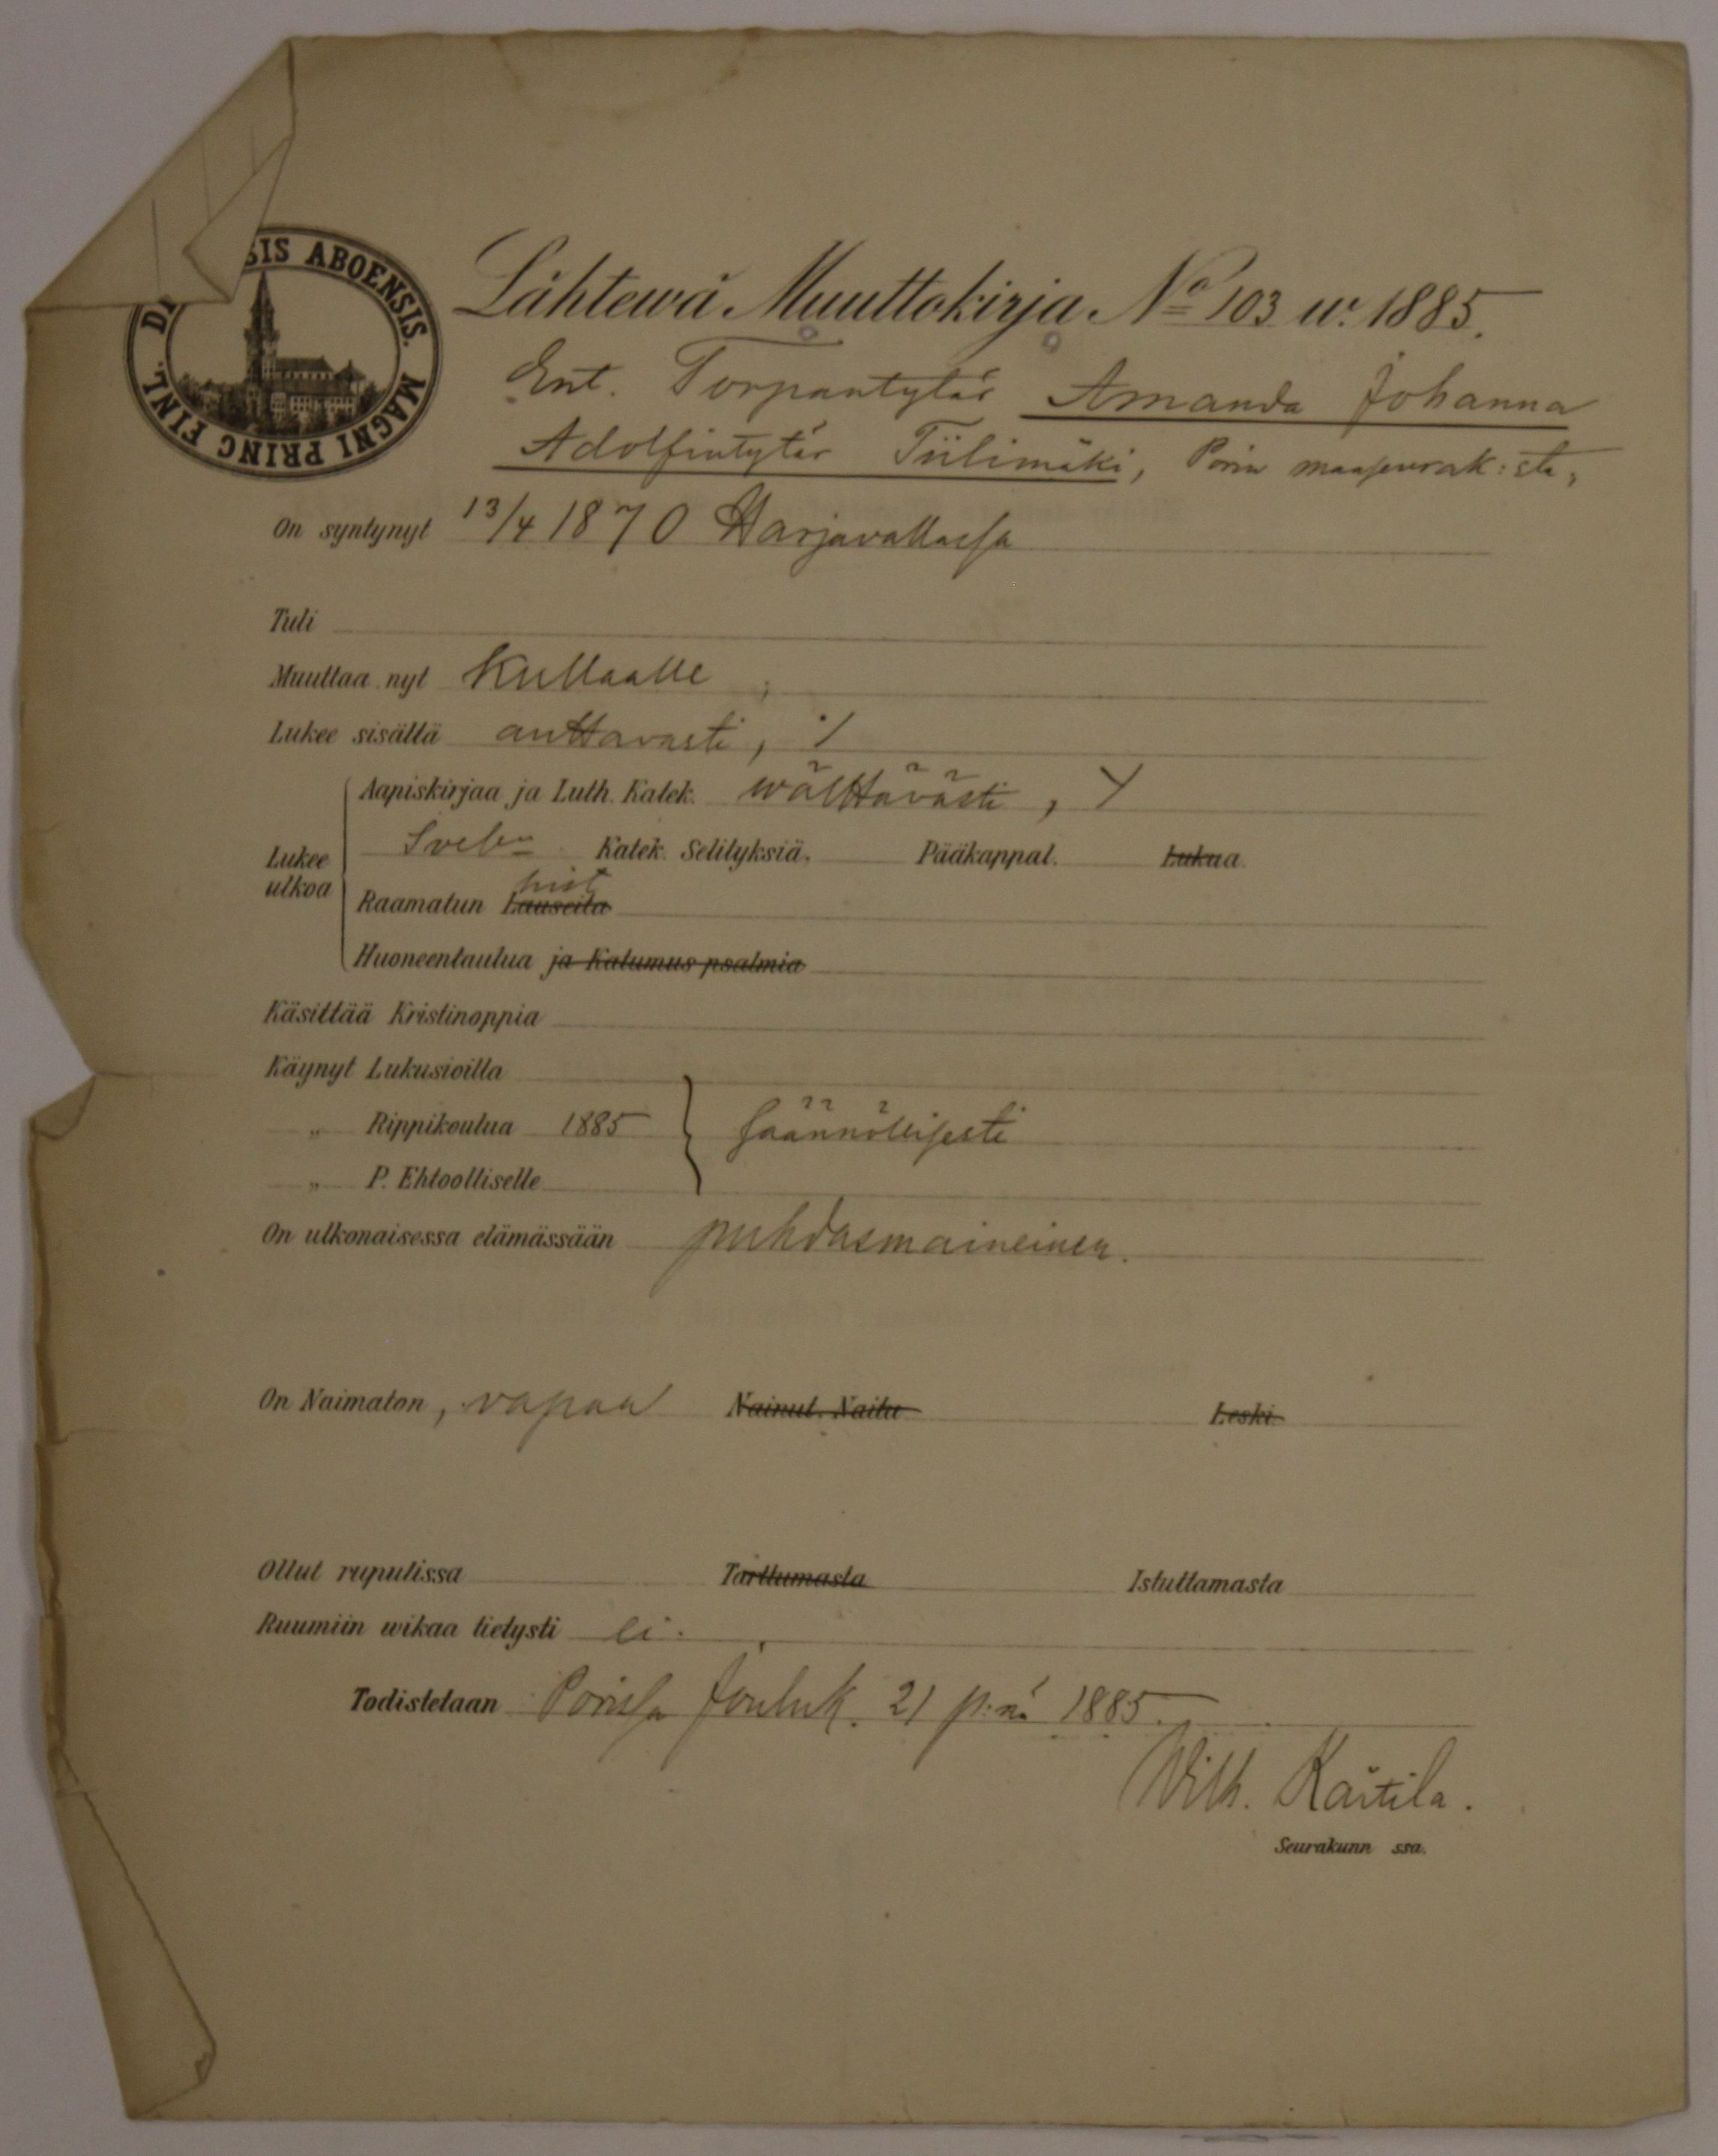 SIS ABOENSIS. MAGNI PRINC FINL.
Lähtewä Muuttokirja No 103 w. 1885.
Ent. Torpantytär Amanda Johanna
Adolfintytär Tiilimäki, Porin maaseurak:sta,
On syntynyt 13/4 1870 Harjavallassa
Tuli
Muuttaa nyt Kullaalle
Lukee sisältä auttavasti, ٪
Aapiskirjaa ja Luth. Katek. wälttävästi,
Lukee ulkoa
Sveb. Katek. Selityksiä. Pääkappal. Lukua.
hist
Raamatun Lauseita
Huoneentaulua ja Katumus psalmia
Käsittää Kristinoppia
Käynyt Lukusioilla
„ Rippikoulua 1885 } säännöllisesti
„ P. Ehtoolliselle
On ulkonaisessa elämässään puhdasmaineinen.
On Naimaton, vapaa Nainut. Naitu Leski.
Ollut rupulissa Tarttumasta Istuttamasta
Ruumiin wikaa tietysti ei.
Todistetaan Porissa Jouluk. 21 p:nä 1885.
Wilh. Kaitila.
Seurakunn ssa.